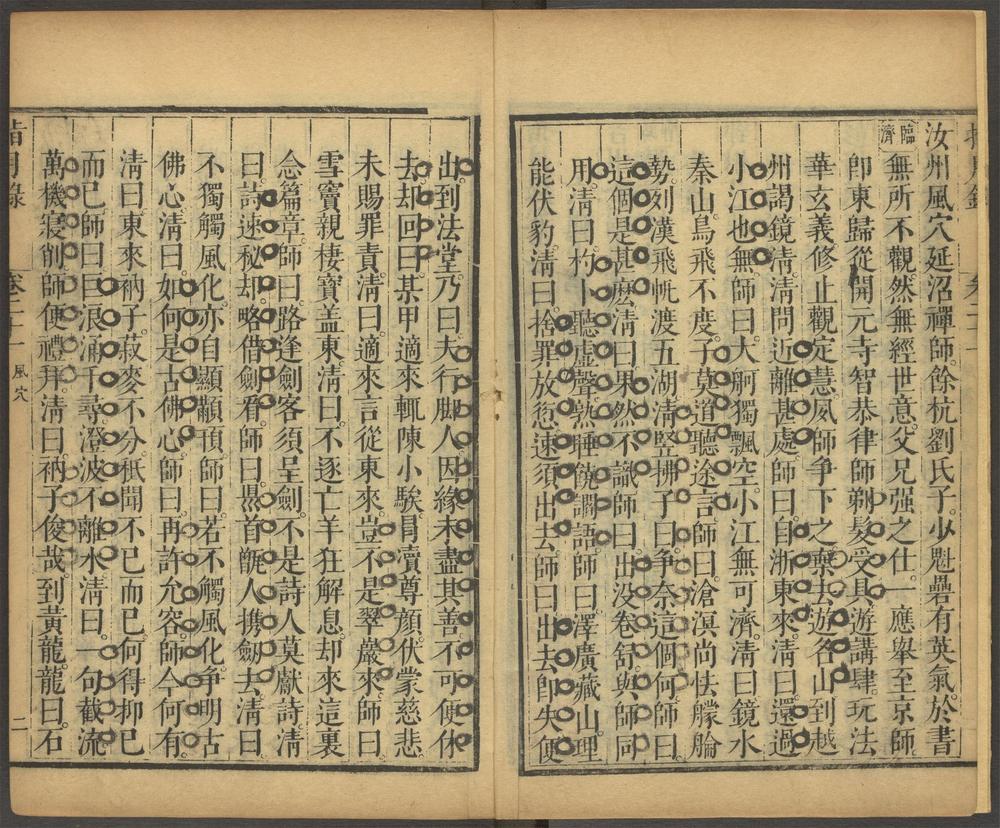 汝州風穴延沼禪師餘杭劉氏子少魁礨有英氣於書
臨濟
無所不觀然無經世意父兄强之仕一應舉至京師
卽東歸從開元寺智恭律師剃髮受具遊講肆玩法
華玄義修止觀定慧夙師爭下之棄去遊名山到越
州謁鏡淸淸問近離甚處師曰自浙東來淸曰還過
小江也無師曰大舸獨飄空小江無可濟淸曰鏡水
秦山鳥飛不度子莫道聽途言師曰滄溟尚怯艨艟
勢列漢飛帆渡五湖淸竪拂子曰争奈這個何師曰
這個是甚麽淸曰果然不識師曰出没卷舒與師同
用淸曰杓卜聽虛聲熟睡饒讇語師曰澤廣藏山理
能伏豹淸曰捨罪放愆速須出去師曰出去卽失便
出到法堂乃曰夫行脚人因緣未盡其善不可便休
去却回曰某甲適來輒陳小騃冐瀆尊顔伏蒙慈悲
未賜罪責淸曰適來言從東來豈不是翠巖來師曰
雪竇親棲寶盖東淸曰不逐亡羊狂解息却來這裏
念篇章師曰路逢劍客須呈劍不是詩人莫獻詩淸
曰詩速秘却略借劍看師曰㬎首甑人携劒去淸曰
不獨觸風化亦自顯顢頇師曰若不觸風化爭明古
佛心淸曰如何是古佛心師曰再許允容師今何有
淸曰東來衲子菽麥不分秪聞不已而已何得抑已
而已師曰巨浪涌千尋澄波不離水淸曰一句截流
萬機寢削師便禮拜淸曰衲子俊哉到黄龍龍曰石
指月錄 卷二十一 風穴 二